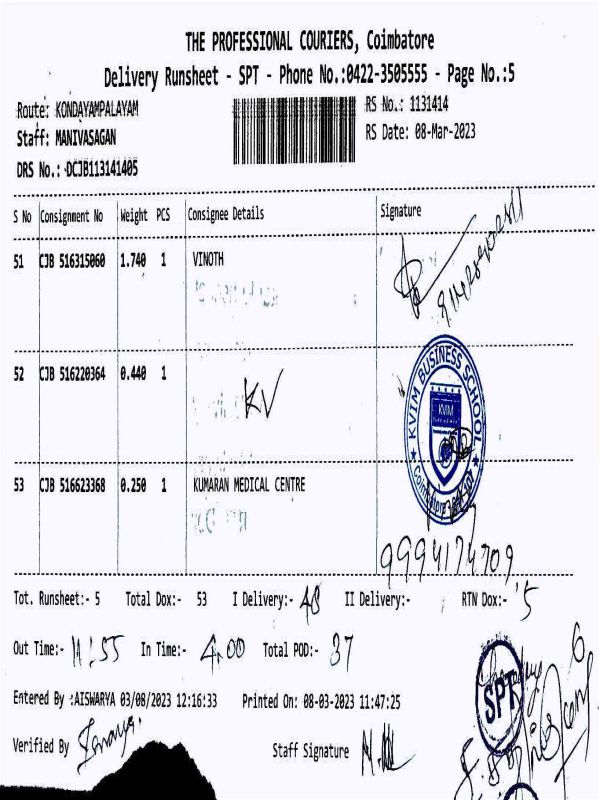 THE PROFESSIONAL COURIERS, Coimbatore
Delivery Runsheet - SPT - Phone No.:0422-3505555 - Page No.:5
Route: KONDAYAMPALAYAM
RS No.: 1131414
Staff: MANIVASAGAN
RS Date: 08-Mar-2023
DRS No.: DCJB113141405
S No Consignment No Weight PCS Consignee Details Signature
51 CJB 516315060 1.740 1 VINOTH
52 CJB 516220364 0.440 1
KV
KVIM BUSINESS SCHOOL
KVIM
Coimbatore
53 CJB 516623368 0.250 1 KUMARAN MEDICAL CENTRE
9994174709
Tot. Runsheet:- 5 Total Dox:- 53 I Delivery:- 48 II Delivery:- RTN Dox:- 5
Out Time:- 11:55 In Time:- 4.00 Total POD:- 37
Entered By :AISWARYA 03/08/2023 12:16:33 Printed On: 08-03-2023 11:47:25
SPT
Verified By Staff Signature